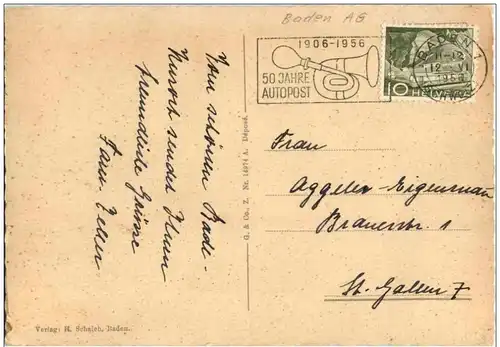 Baden AG
1906-1956
50 JAHRE
AUTOPOST
BADEN 1
11-12
12. VI
1956
10
HELVETIA
Vom schönen Bade-
Kurort sendet Ihnen
freundliche Grüsse
Fam.
Frau
Aggeler-Eigenmann
Brauerstr. 1
St. Gallen 7
G. & Co. Z. Nr. 14974 A. Déposé.
Verlag: H. Schaich, Baden.